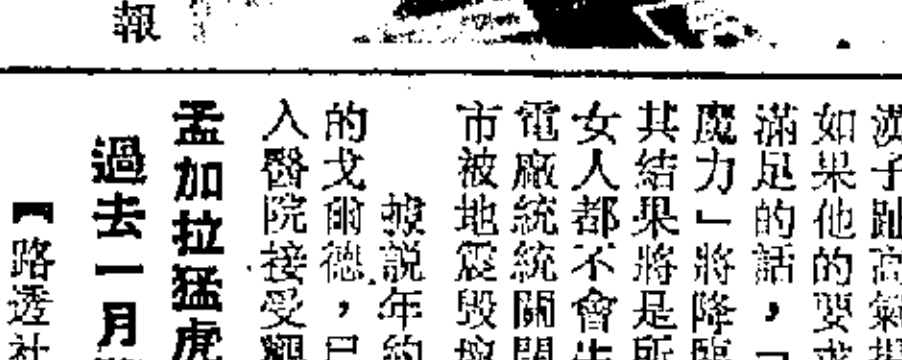 報
漢子趾高氣揚
如果他的要求
滿足的話，「
魔力」將降臨
其結果將是所
女人都不會生
電廠統統關閉
市被地震毀壞
據説年約
的戈爾德，已
入醫院接受
孟加拉猛虎
過去一月
【路透社